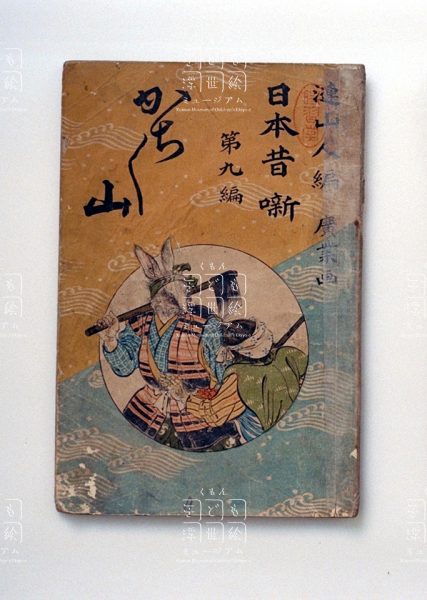 漣山人編 廣業画
日本昔噺
第九編
かち〱山
くもん
子ども
浮世絵
ミュージアム